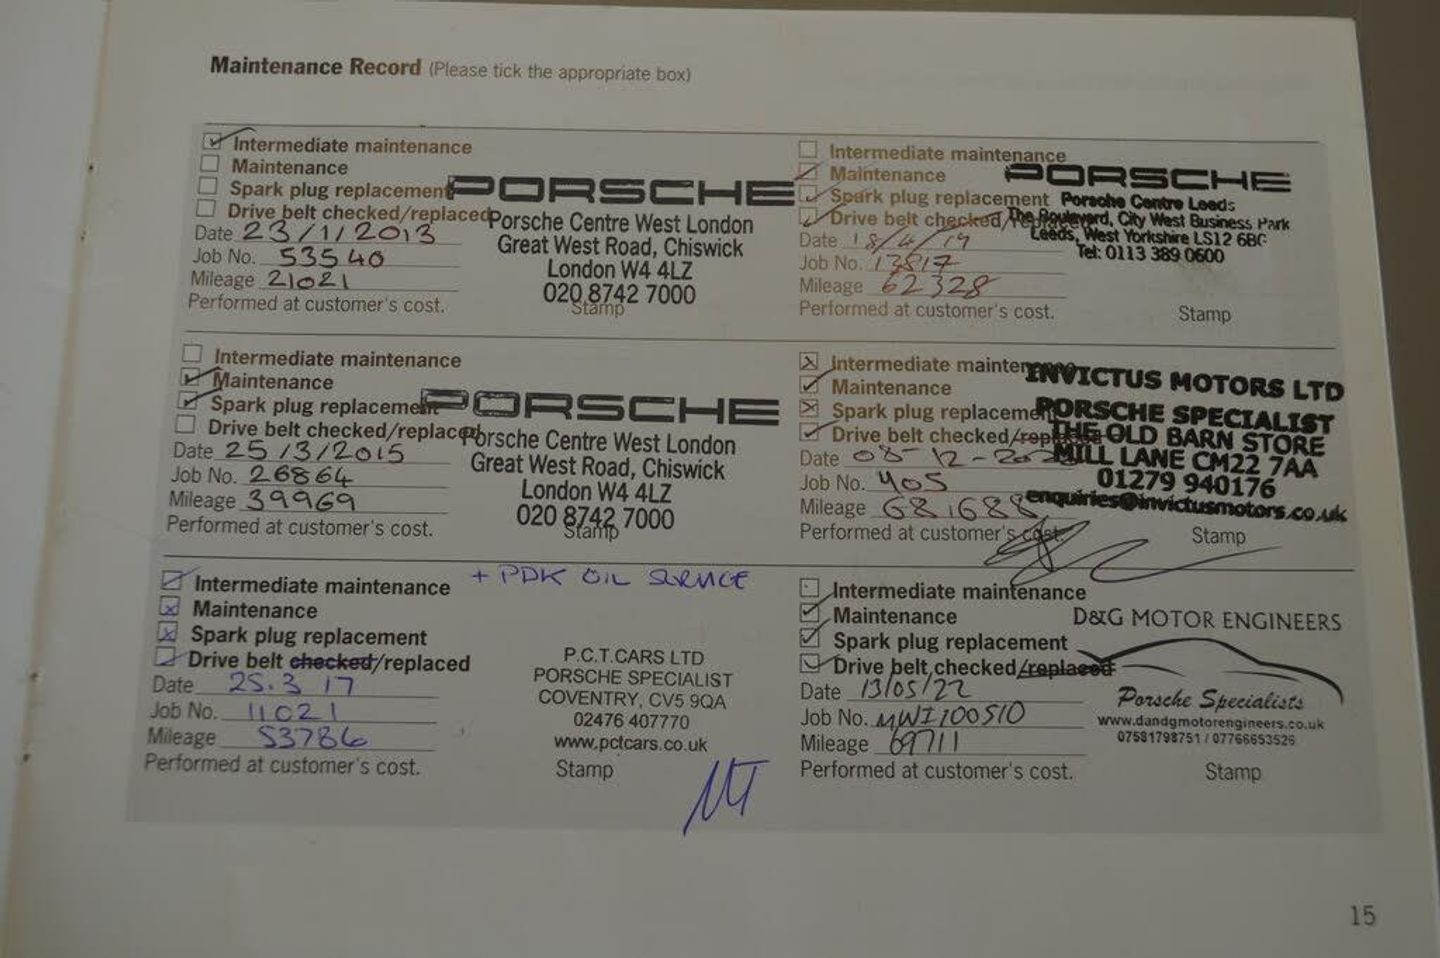 Maintenance Record (Please tick the appropriate box)
Intermediate maintenance
Maintenance
Spark plug replacement
Drive belt checked/replaced
Date 23/1/2013
Job No. 53540
Mileage 21021
Performed at customer's cost.
PORSCHE
Porsche Centre West London
Great West Road, Chiswick
London W4 4LZ
020 8742 7000
Stamp
Intermediate maintenance
Maintenance
Spark plug replacement
Drive belt checked/replaced
Date 25/3/2015
Job No. 26864
Mileage 39969
Performed at customer's cost.
PORSCHE
Porsche Centre West London
Great West Road, Chiswick
London W4 4LZ
020 8742 7000
Stamp
+ PDK OIL SERVICE
Intermediate maintenance
Maintenance
Spark plug replacement
Drive belt checked/replaced
Date 25.3 17
Job No. 11021
Mileage 53786
Performed at customer's cost.
P.C.T.CARS LTD
PORSCHE SPECIALIST
COVENTRY, CV5 9QA
02476 407770
www.pctcars.co.uk
Stamp
Intermediate maintenance
Maintenance
Spark plug replacement
Drive belt checked/replaced
Date 18/4/19
Job No. 13817
Mileage 62328
Performed at customer's cost.
PORSCHE
Porsche Centre Leeds
The Boulevard, City West Business Park
Leeds, West Yorkshire LS12 6BG
Tel: 0113 389 0600
Stamp
Intermediate maintenance
Maintenance
Spark plug replacement
Drive belt checked/replaced
Date 08-12-
Job No. 405
Mileage 68,688
Performed at customer's cost.
INVICTUS MOTORS LTD
PORSCHE SPECIALIST
THE OLD BARN STORE
MILL LANE CM22 7AA
01279 940176
enquiries@invictusmotors.co.uk
Stamp
Intermediate maintenance
Maintenance
Spark plug replacement
Drive belt checked/replaced
Date 13/05/22
Job No. MWI100510
Mileage 69711
Performed at customer's cost.
D&G MOTOR ENGINEERS
Porsche Specialists
www.dandgmotorengineers.co.uk
07581798751 / 07766653526
Stamp
15